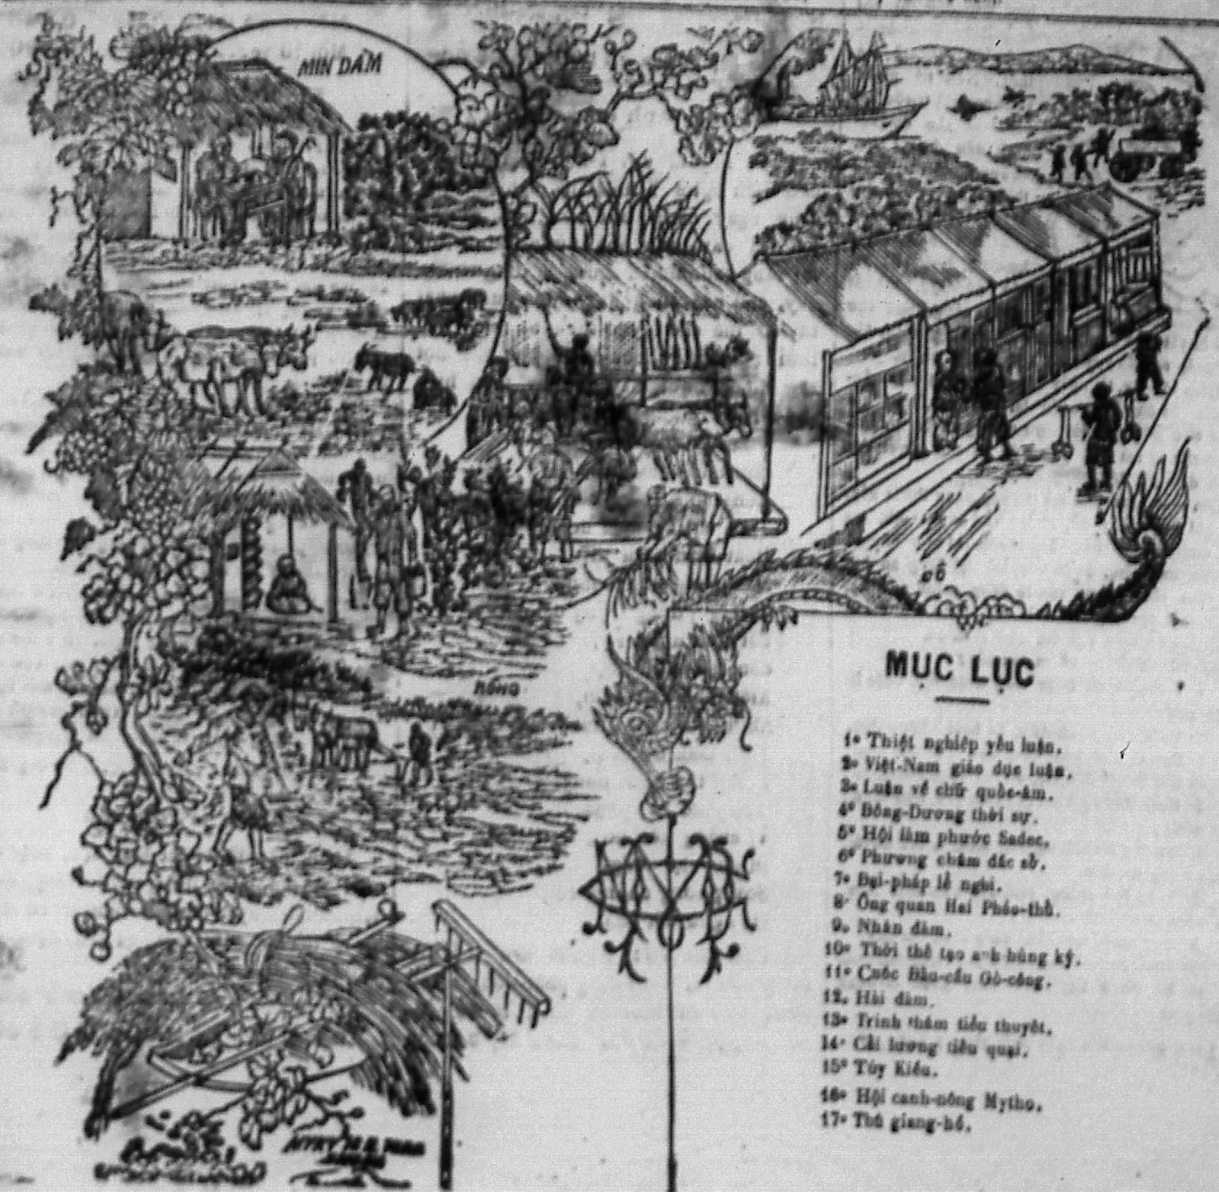 MIN ĐÀM
CỔ
NÔNG
MỤC LỤC
1º Thiệt nghiệp yếu luận.
2º Việt-Nam giáo dục luận.
3º Luận về chữ quốc-âm.
4º Đông-Dương thời sự.
5º Hội làm phước Sadec.
6º Phương châm đắc sở.
7º Đại-pháp lễ nghi.
8º Ông quan Hai Pháo-thủ.
9º Nhàn đàm.
10º Thời thế tạo anh hùng ký.
11º Cuộc Bầu-cầu Gò-công.
12. Hài đàm.
13º Trinh thám tiểu thuyết.
14º Cải lương tiêu quại.
15º Túy Kiều.
16º Hội canh-nông Mytho.
17º Thú giang-hồ.